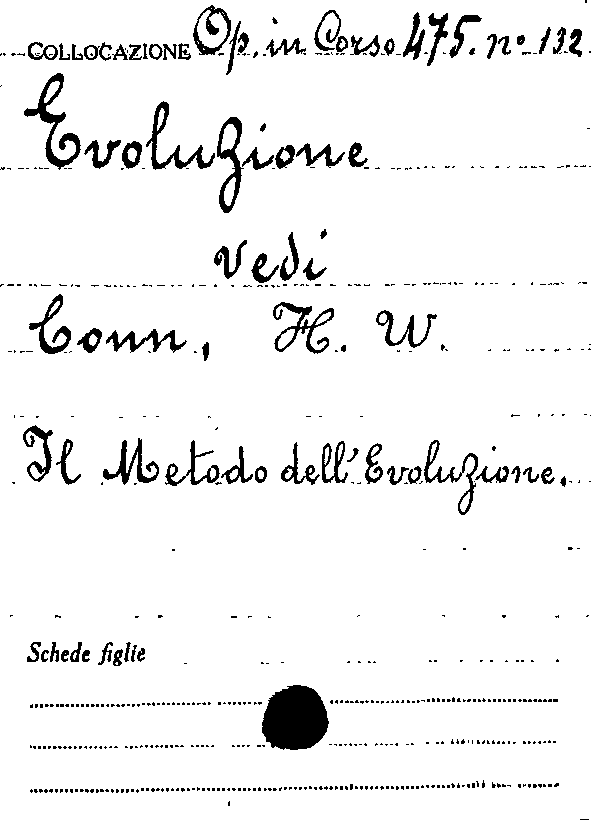 COLLOCAZIONE Op. in Corso 475. nº 132
Evoluzione
vedi
Conn, H. W.
Il Metodo dell'Evoluzione.
Schede figlie